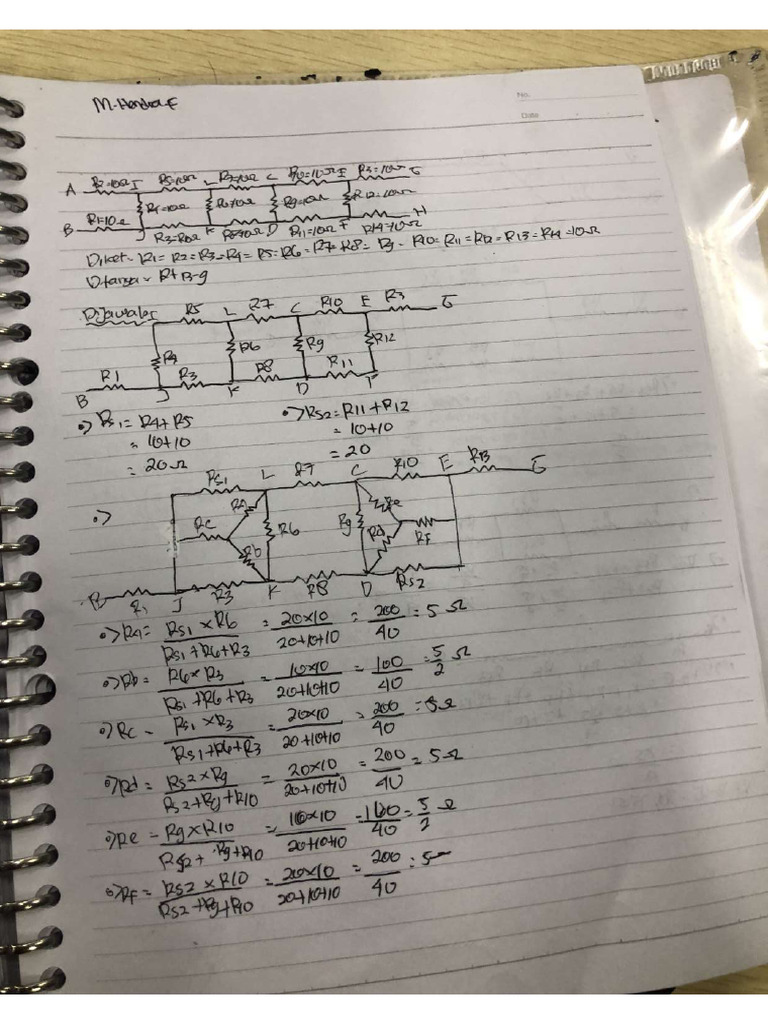 M. Hendra F
No.
Date
A R2=10Ω I R5=10Ω L R7=10Ω C R10=10Ω E R13=10Ω G
R4=10Ω R6=10Ω R9=10Ω R12=10Ω
B R1=10Ω J R3=10Ω K R8=10Ω D R11=10Ω F R14=10Ω H
Diket = R1 = R2 = R3 = R4 = R5 = R6 = R7 = R8 = R9 = R10 = R11 = R12 = R13 = R14 = 10Ω
Ditanya = Rt B-g
Dijawab = I R5 L R7 C R10 E R3 G
R4 R6 R9 R12
B R1 J R3 K R8 D R11 F
=> Rs1 = R4 + R5
= 10+10
= 20Ω
=> Rs2 = R11 + R12
= 10+10
= 20
=> Rs1 L R7 C R10 E R13 G
Rc Ra R6 R9 Re Rd RF
Rb
B R1 J R3 K R8 D Rs2
=> Ra = Rs1 x R6 / Rs1 + R6 + R3 = 20x10 / 20+10+10 = 200 / 40 = 5 Ω
=> Rb = R6 x R3 / Rs1 + R6 + R3 = 10x10 / 20+10+10 = 100 / 40 = 5 / 2 Ω
=> Rc = Rs1 x R3 / Rs1 + R6 + R3 = 20x10 / 20+10+10 = 200 / 40 = 5Ω
=> Rd = Rs2 x Rg / Rs2 + Rg + R10 = 20x10 / 20+10+10 = 200 / 40 = 5Ω
=> Re = Rg x R10 / Rs2 + Rg + R10 = 10x10 / 20+10+10 = 100 / 40 = 5 / 2 Ω
=> RF = Rs2 x R10 / Rs2 + Rg + R10 = 20x10 / 20+10+10 = 200 / 40 = 5